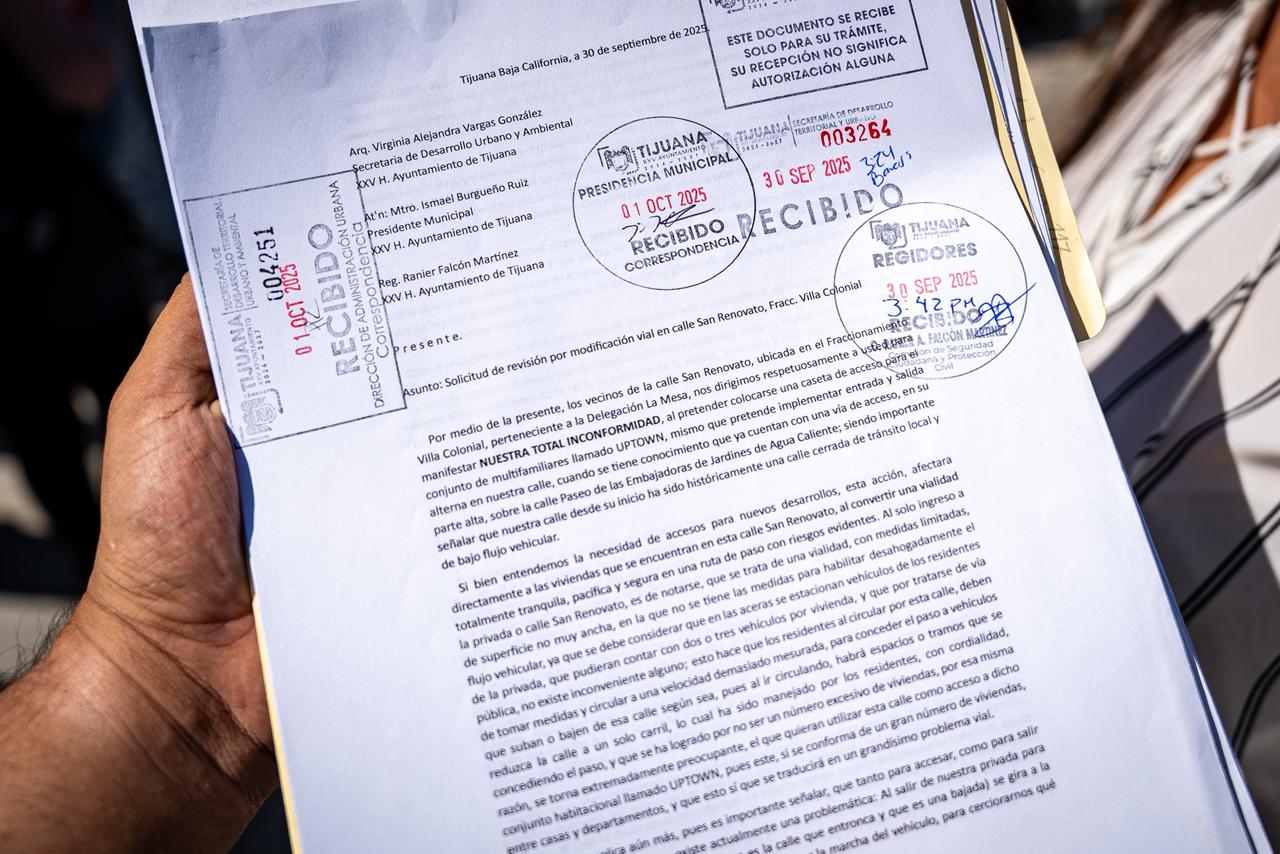 Tijuana Baja California, a 30 de septiembre de 2025.
ESTE DOCUMENTO SE RECIBE
SOLO PARA SU TRÁMITE,
SU RECEPCIÓN NO SIGNIFICA
AUTORIZACIÓN ALGUNA
Arq. Virginia Alejandra Vargas González
Secretaria de Desarrollo Urbano y Ambiental
XXV H. Ayuntamiento de Tijuana
At'n: Mtro. Ismael Burgueño Ruiz
Presidente Municipal
XXV H. Ayuntamiento de Tijuana
Reg. Ranier Falcón Martínez
XXV H. Ayuntamiento de Tijuana
P r e s e n t e.
TIJUANA
XXV AYUNTAMIENTO
2024 - 2027
SECRETARÍA DE
DESARROLLO TERRITORIAL,
URBANO Y AMBIENTAL
004251
01 OCT 2025
RECIBIDO
DIRECCIÓN DE ADMINISTRACIÓN URBANA
Correspondencia
TIJUANA
XXV AYUNTAMIENTO
2024 - 2027
PRESIDENCIA MUNICIPAL
01 OCT 2025
RECIBIDO
CORRESPONDENCIA
TIJUANA
2024 - 2027
SECRETARÍA DE DESARROLLO
TERRITORIAL Y URBANO
003264
30 SEP 2025
3:24
RECIBIDO
TIJUANA
REGIDORES
30 SEP 2025
3:42 PM
RECIBIDO
A. FALCÓN MARTÍNEZ
Comisión de Seguridad
Ciudadana y Protección
Civil
Asunto: Solicitud de revisión por modificación vial en calle San Renovato, Fracc. Villa Colonial
Por medio de la presente, los vecinos de la calle San Renovato, ubicada en el Fraccionamiento
Villa Colonial, perteneciente a la Delegación La Mesa, nos dirigimos respetuosamente a usted para
manifestar NUESTRA TOTAL INCONFORMIDAD, al pretender colocarse una caseta de acceso para el
conjunto de multifamiliares llamado UPTOWN, mismo que pretende implementar entrada y salida
alterna en nuestra calle, cuando se tiene conocimiento que ya cuentan con una via de acceso, en su
parte alta, sobre la calle Paseo de las Embajadoras de Jardines de Agua Caliente; siendo importante
señalar que nuestra calle desde su inicio ha sido históricamente una calle cerrada de tránsito local y
de bajo flujo vehicular.
Si bien entendemos la necesidad de accesos para nuevos desarrollos, esta acción, afectara
directamente a las viviendas que se encuentran en esta calle San Renovato, al convertir una vialidad
totalmente tranquila, pacífica y segura en una ruta de paso con riesgos evidentes. Al solo ingreso a
la privada o calle San Renovato, es de notarse, que se trata de una vialidad, con medidas limitadas,
de superficie no muy ancha, en la que no se tiene las medidas para habilitar desahogadamente el
flujo vehicular, ya que se debe considerar que en las aceras se estacionan vehículos de los residentes
de la privada, que pudieran contar con dos o tres vehículos por vivienda, y que por tratarse de vía
pública, no existe inconveniente alguno; esto hace que los residentes al circular por esta calle, deben
de tomar medidas y circular a una velocidad demasiado mesurada, para conceder el paso a vehículos
que suban o bajen de esa calle según sea, pues al ir circulando, habrá espacios o tramos que se
reduzca la calle a un solo carril, lo cual ha sido manejado por los residentes, con cordialidad,
concediendo el paso, y que se ha logrado por no ser un número excesivo de viviendas, por esa misma
razón, se torna extremadamente preocupante, el que quieran utilizar esta calle como acceso a dicho
conjunto habitacional llamado UPTOWN, pues este, si se conforma de un gran número de viviendas,
entre casas y departamentos, y que esto sí que se traducirá en un grandísimo problema vial.
aún más, pues es importante señalar, que tanto para accesar, como para salir
existe actualmente una problemática: Al salir de nuestra privada para
es la calle que entronca y que es una bajada) se gira a la
la marcha del vehículo, para cerciorarnos qué